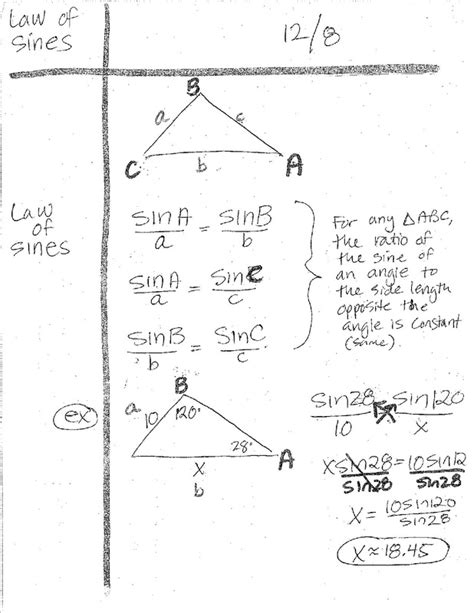 Law of
sines
12/8
B
a
c
C
b
A
Law
of
sines
sin A/a = sin B/b
sin A/a = sin C/c
sin B/b = sin C/c
For any △ABC,
the ratio of
the sine of
an angle to
the side length
opposite the
angle is constant
(same).
ex
B
a
10
120°
28°
A
x
b
sin28/10 = sin120/x
x sin28/sin28 = 10sin12/sin28
x = 10sin120/sin28
x ≈ 18.45